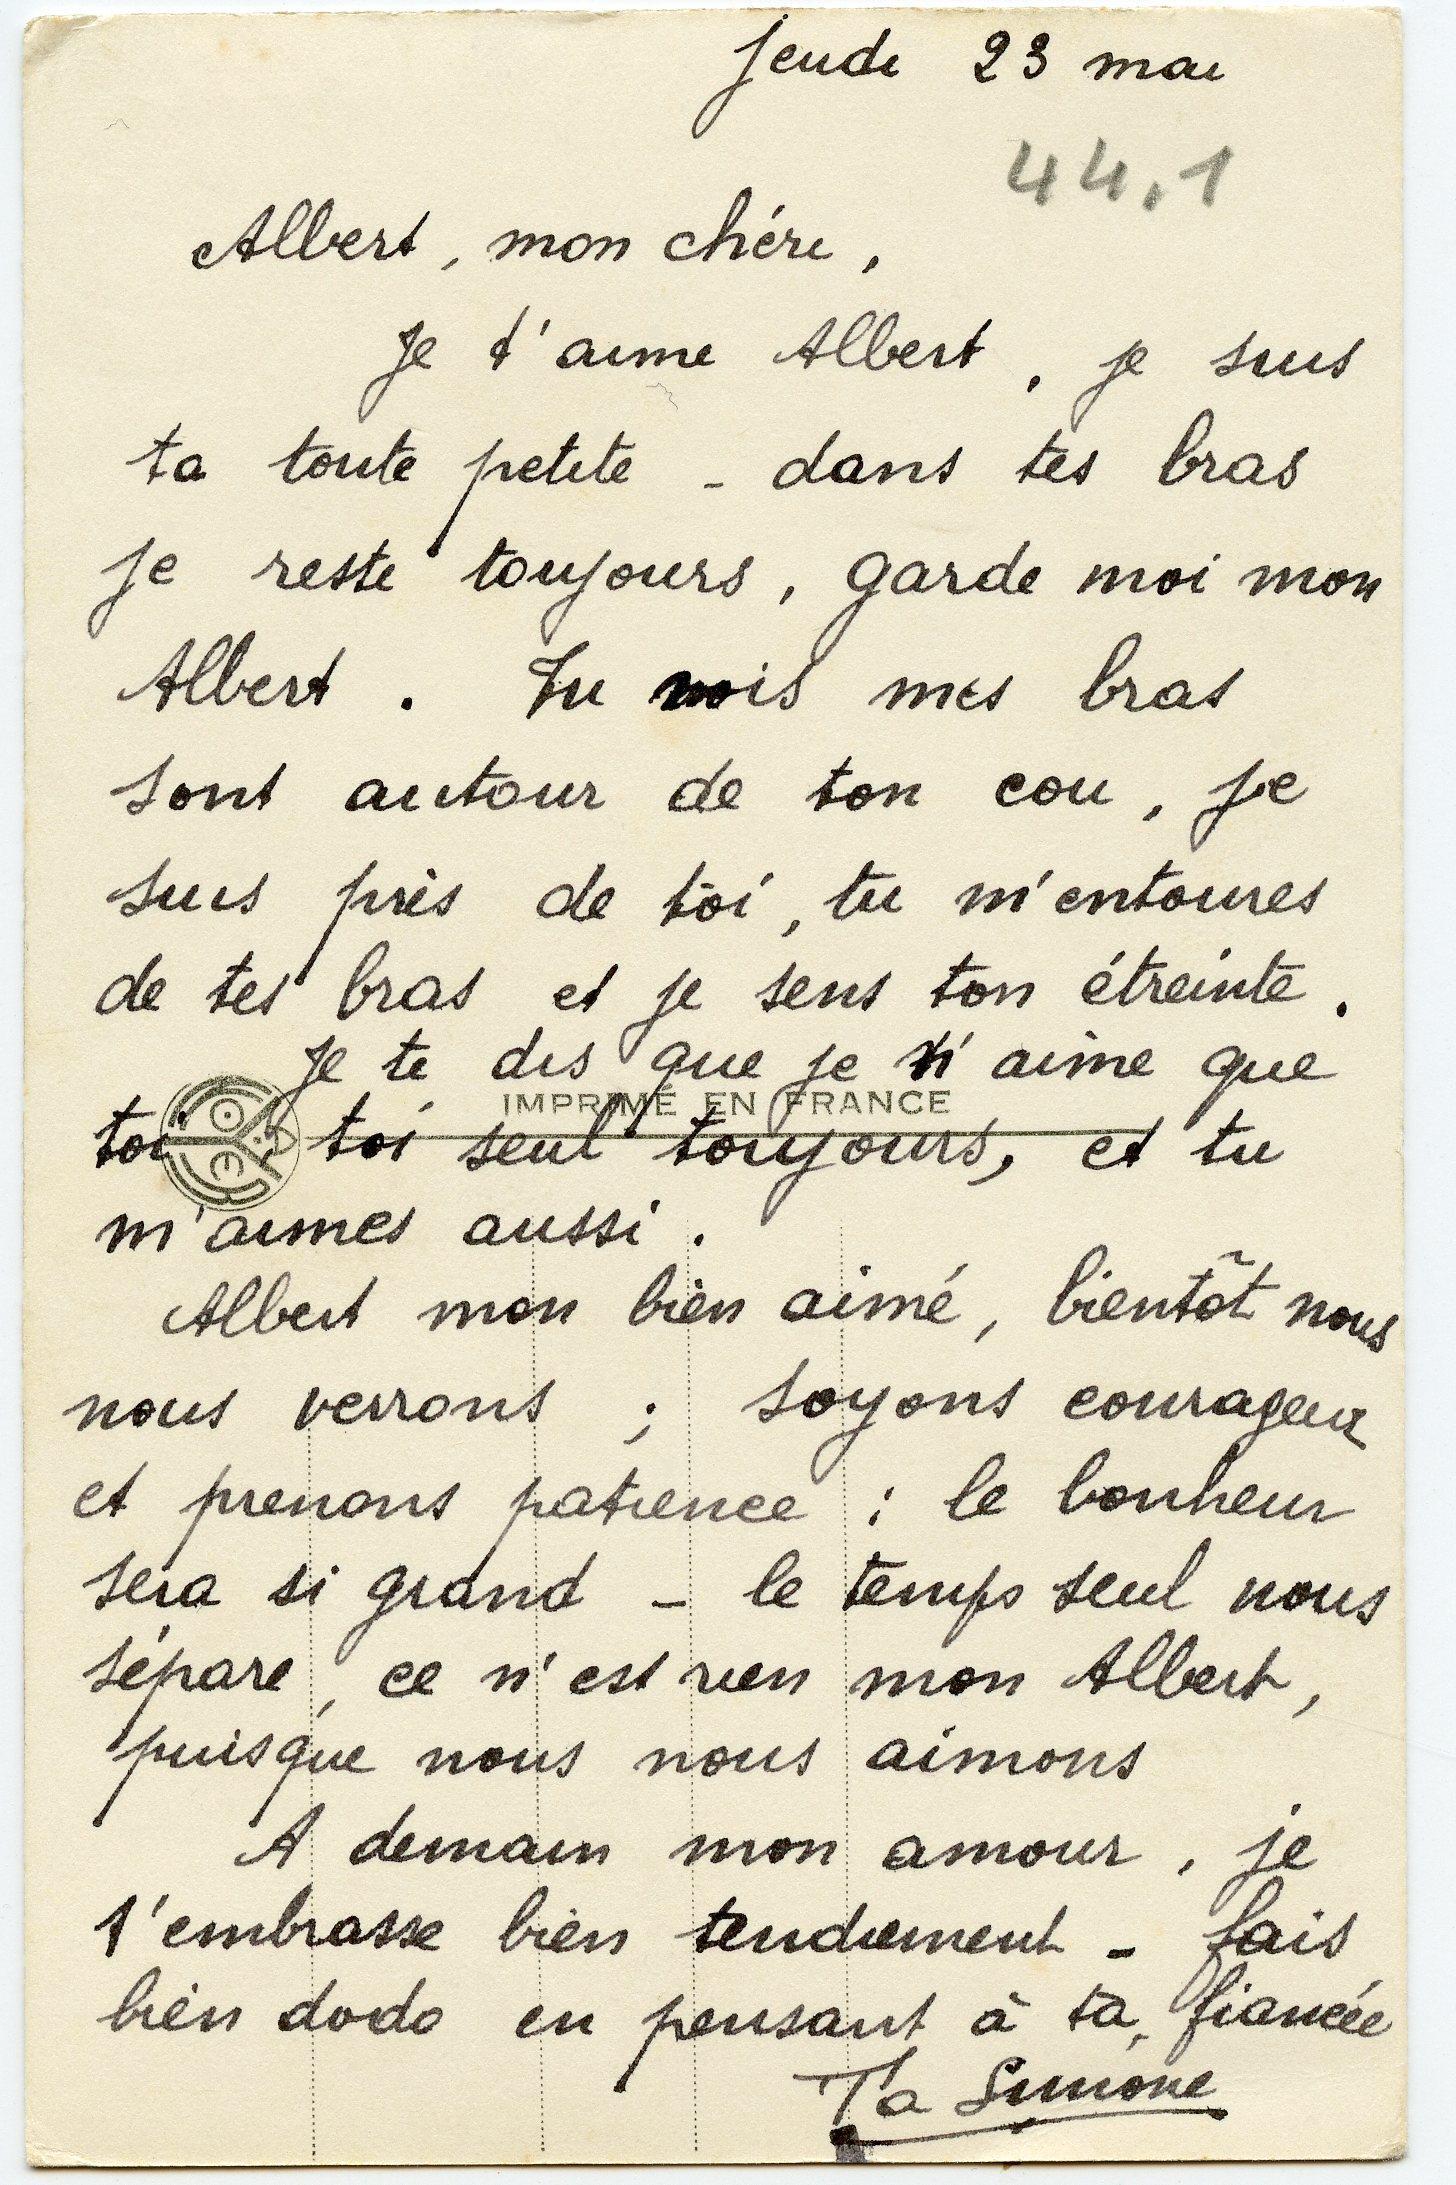 Jeudi 23 mai
44.1
Albert, mon chéri,
Je t'aime Albert, je suis
ta toute petite - dans tes bras
je reste toujours, garde moi mon
Albert. Tu vois mes bras
sont autour de ton cou, je
suis près de toi, tu m'entoures
de tes bras et je sens ton étreinte.
Je te dis que je n'aime que
IMPRIMÉ EN FRANCE
toi toi seul toujours, et tu
m'aimes aussi.
Albert mon bien aimé, bientôt nous
nous verrons ; soyons courageux
et prenons patience : le bonheur
sera si grand - le temps seul nous
sépare, ce n'est rien mon Albert,
puisque nous nous aimons
A demain mon amour, je
t'embrasse bien tendrement - fais
bien dodo en pensant à ta fiancée
Ta Simone